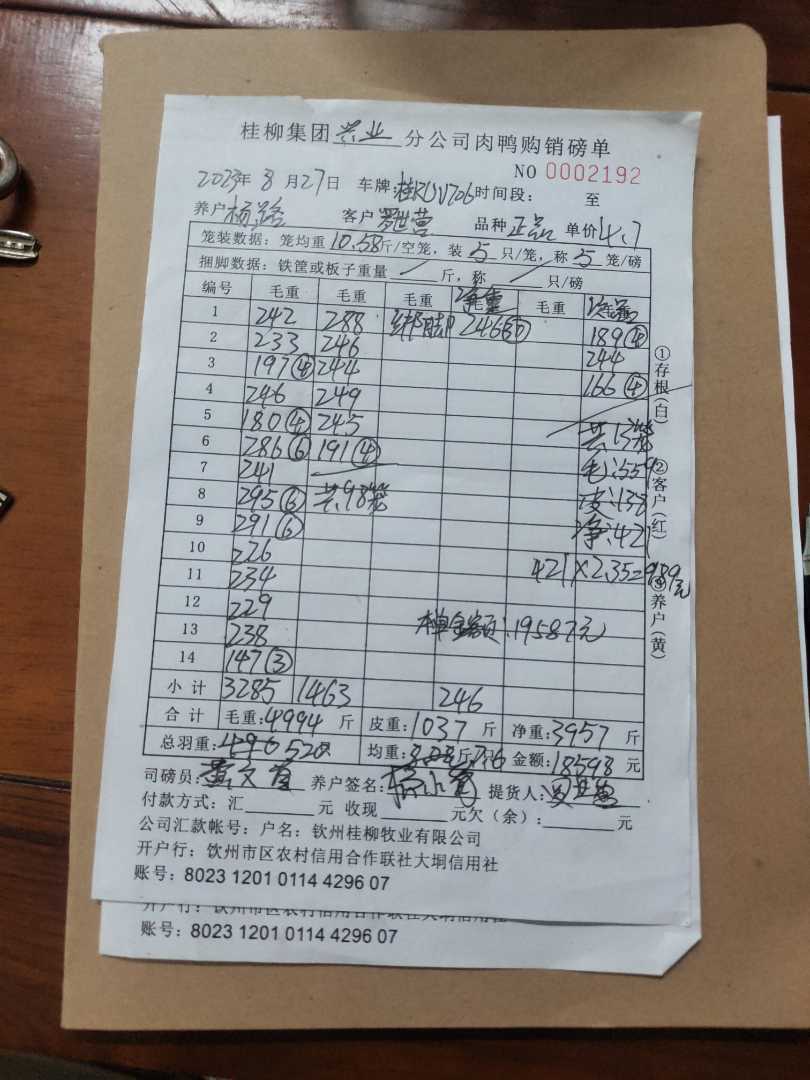 桂柳集团兴业分公司肉鸭购销磅单
NO 0002192
2023年8月27日 车牌:桂KUV706时间段: 至
养户杨 客户罗世营 品种正品 单价4.7
笼装数据: 笼均重10.58斤/空笼, 装5只/笼, 称5笼/磅
捆脚数据: 铁筐或板子重量 斤, 称 只/磅
编号 毛重 毛重 毛重 净重 毛重
1 242 288 绑脚 246 189④
2 233 246 244
3 197④ 244 166④
4 246 249
5 180④ 245 共13笼
6 286⑥ 191④ 毛:559
7 241 皮:138
8 295⑥ 共98笼 净:421
9 291⑥
10 226 421×2.35=989元
11 234
12 229 本单金额:19587元
13 238
14 147③
小计 3285 1463 246
合计 毛重:4994斤 皮重:1037斤 净重:3957斤
总羽重: 520 均重: 斤 7.6 金额:18598元
司磅员: 养户签名: 提货人:
付款方式: 汇 元 收现 元欠(余): 元
公司汇款帐号: 户名: 钦州桂柳牧业有限公司
开户行: 钦州市区农村信用合作联社大垌信用社
账号: 8023 1201 0114 4296 07
①存根(白) ②客户(红) ③养户(黄)
开户行: 钦州市区农村信用合作联社大垌信用社
账号: 8023 1201 0114 4296 07